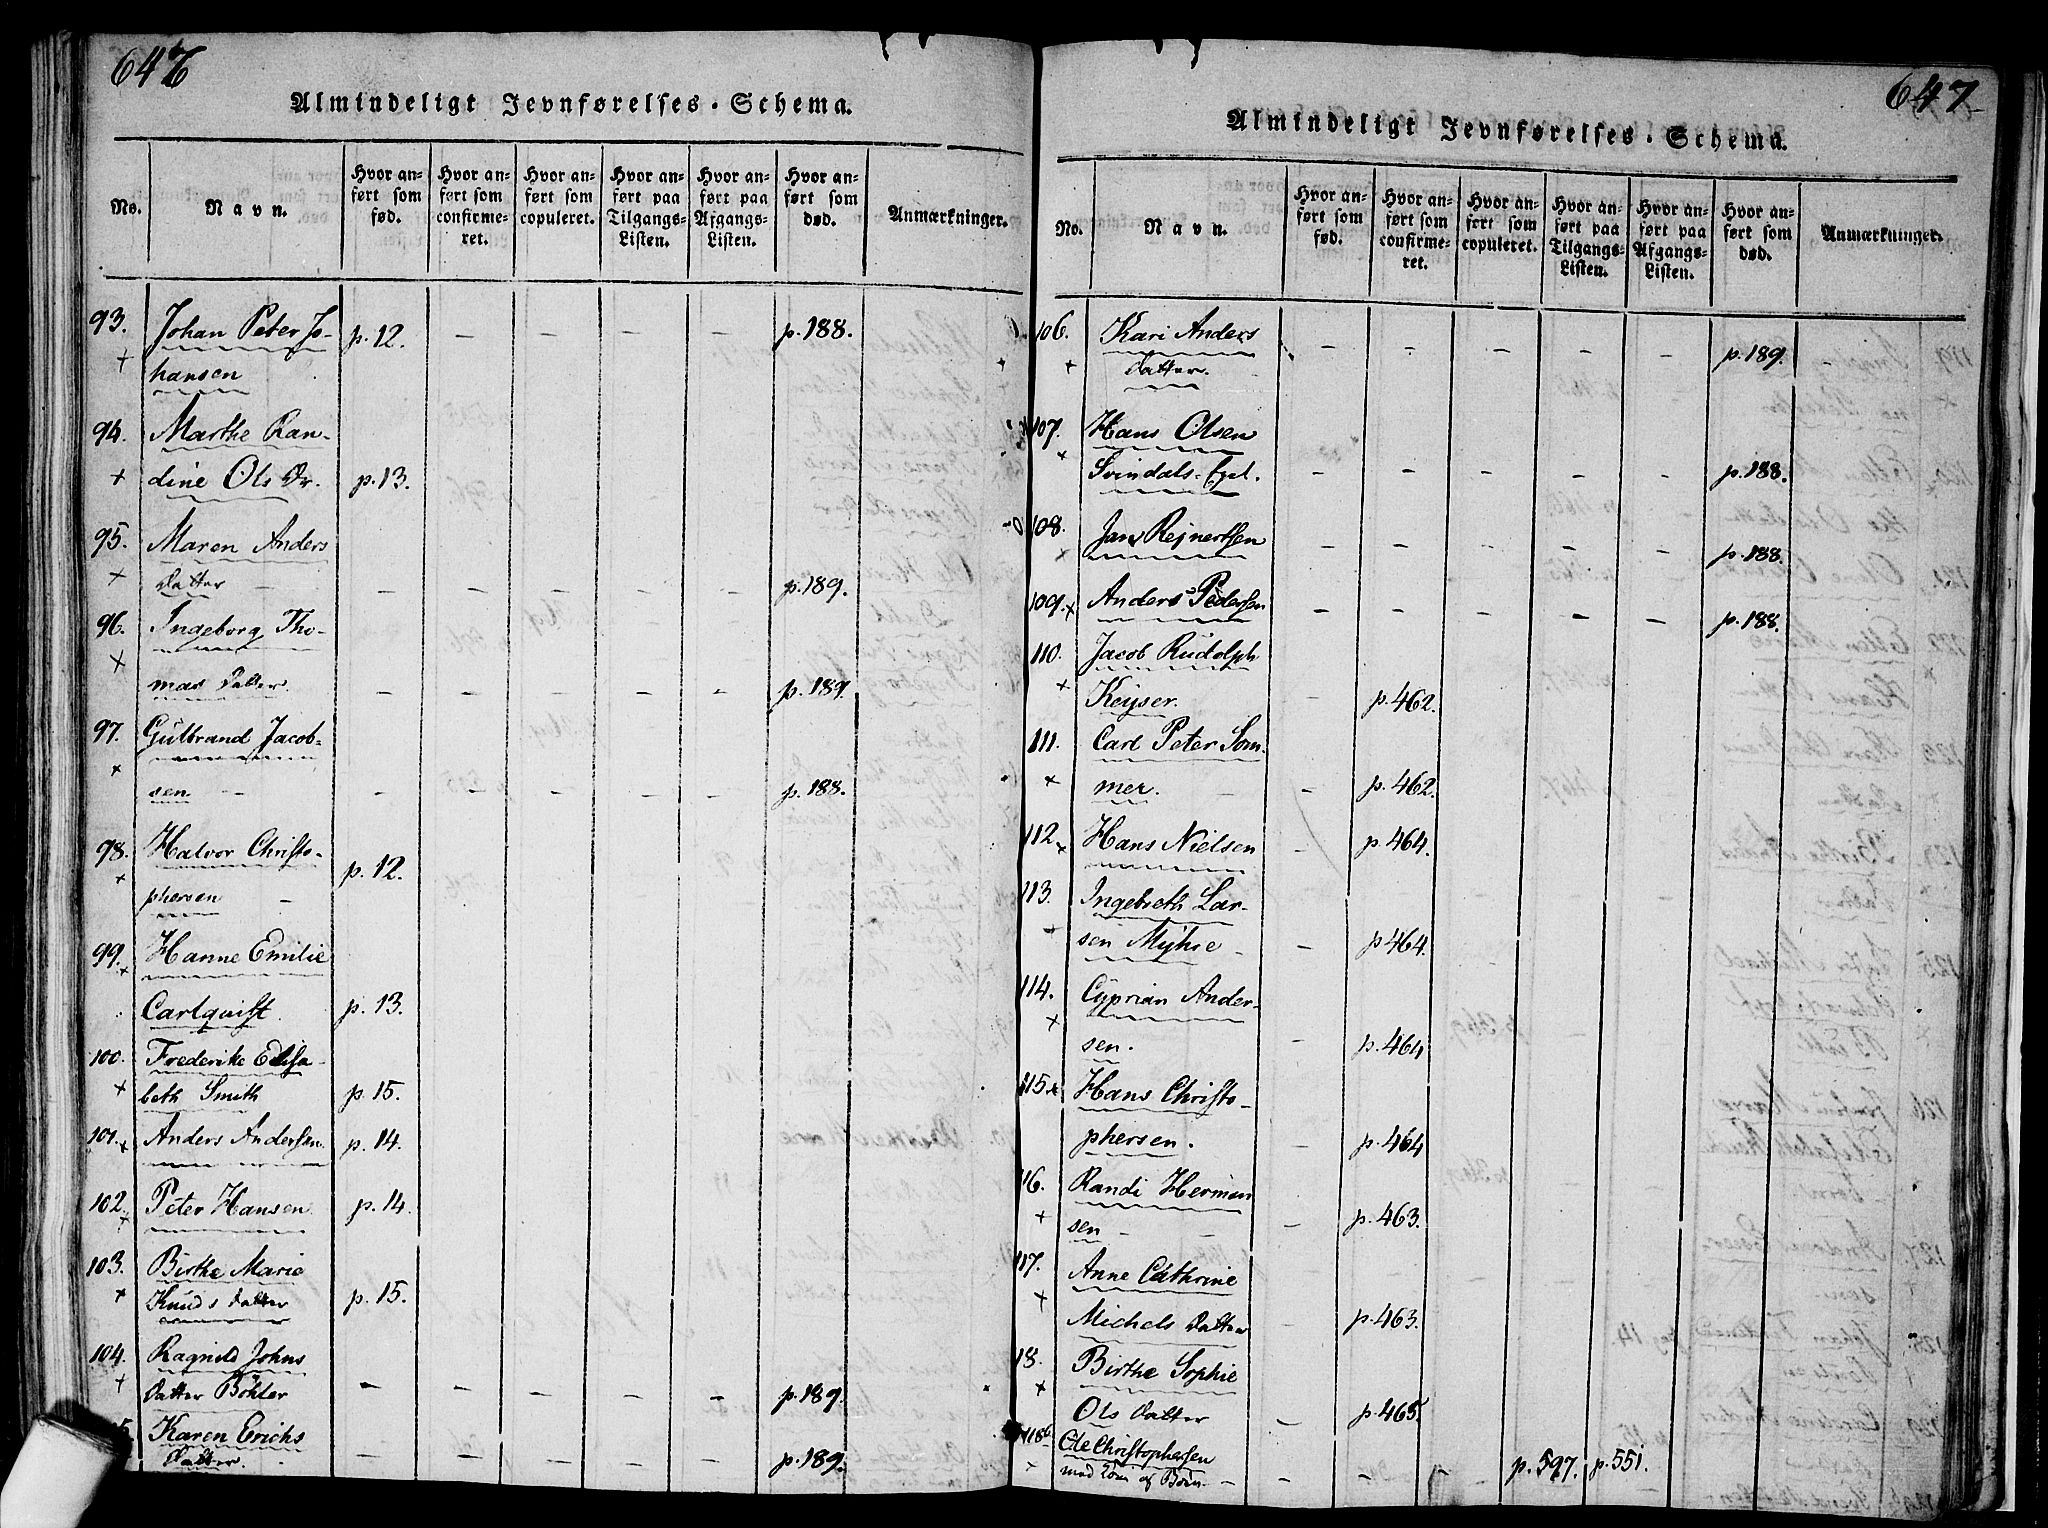 647
Almindeligt Jevnførelses-Schema.
No.
Navn.
Hvor an-
ført som
fød.
Hvor an-
ført som
confirme-
ret.
Hvor an-
ført som
copuleret.
Hvor an-
ført paa
Tilgangs-
Listen.
Hvor an-
ført paa
Afgangs-
Listen.
Hvor an-
ført som
død.
Anmærkninger.
93. Johan Peter Jo- p. 12. – – – – p. 188.
+ hansen
94. Marthe Ran-
+ dine Ols Dr. p. 13.
95. Maren Anders
+ Datter – – – – – – p. 189.
96. Ingeborg Tho-
+ mas Datter. – – – – – p. 189.
97. Gulbrand Jacob-
+ sen – – – – – – p. 188.
98. Halvor Christo- p. 12.
+ phersen –
99. + Hanne Emilie
Carlquist p. 13.
100. Frederike Elisa-
+ beth Smith p. 15.
101. + Anders Andersen p. 14.
102. + Peter Hansen p. 14.
103. Birthe Marie
+ Knuds Datter p. 15.
104. Ragnild Johns
+ Datter Böhler – – – – – p. 189.
5 Karen Erichs
Datter. – – – – – p. 189.
647
Almindeligt Jevnførelses-Schema.
No.
Navn.
Hvor an-
ført som
fød.
Hvor an-
ført som
confirme-
ret.
Hvor an-
ført som
copuleret.
Hvor an-
ført paa
Tilgangs-
Listen.
Hvor an-
ført paa
Afgangs-
Listen.
Hvor an-
ført som
død.
Anmærkninger.
106. Kari Anders
+ Datter. – – – – – p. 189.
107. Hans Olsen
+ Svindals-Ejel. – – – – – p. 188.
108. Jans Rejnertsen
+ – – – – – p. 188.
109. + Anders Pedersen – – – – – p. 188.
110. Jacob Rudolph
+ Keyser. – p. 462.
111. Carl Peter Som-
+ mer. – – p. 462.
112. + Hans Nielsen – p. 464.
113. Ingebreth Lar-
+ sen Myhre – – p. 464.
114. Cyprian Ander-
+ sen. – p. 464
115. + Hans Christo-
phersen. – p. 464
16. Randi Herman
+ sen – – p. 463.
117. Anne Cathrine
+ Michels Datter – p. 463.
18. Birthe Sophie
+ Ols Datter – p. 465.
118b. Ole Christophersen
+ med Kone og Børn. – – – – p. 597. p. 551.